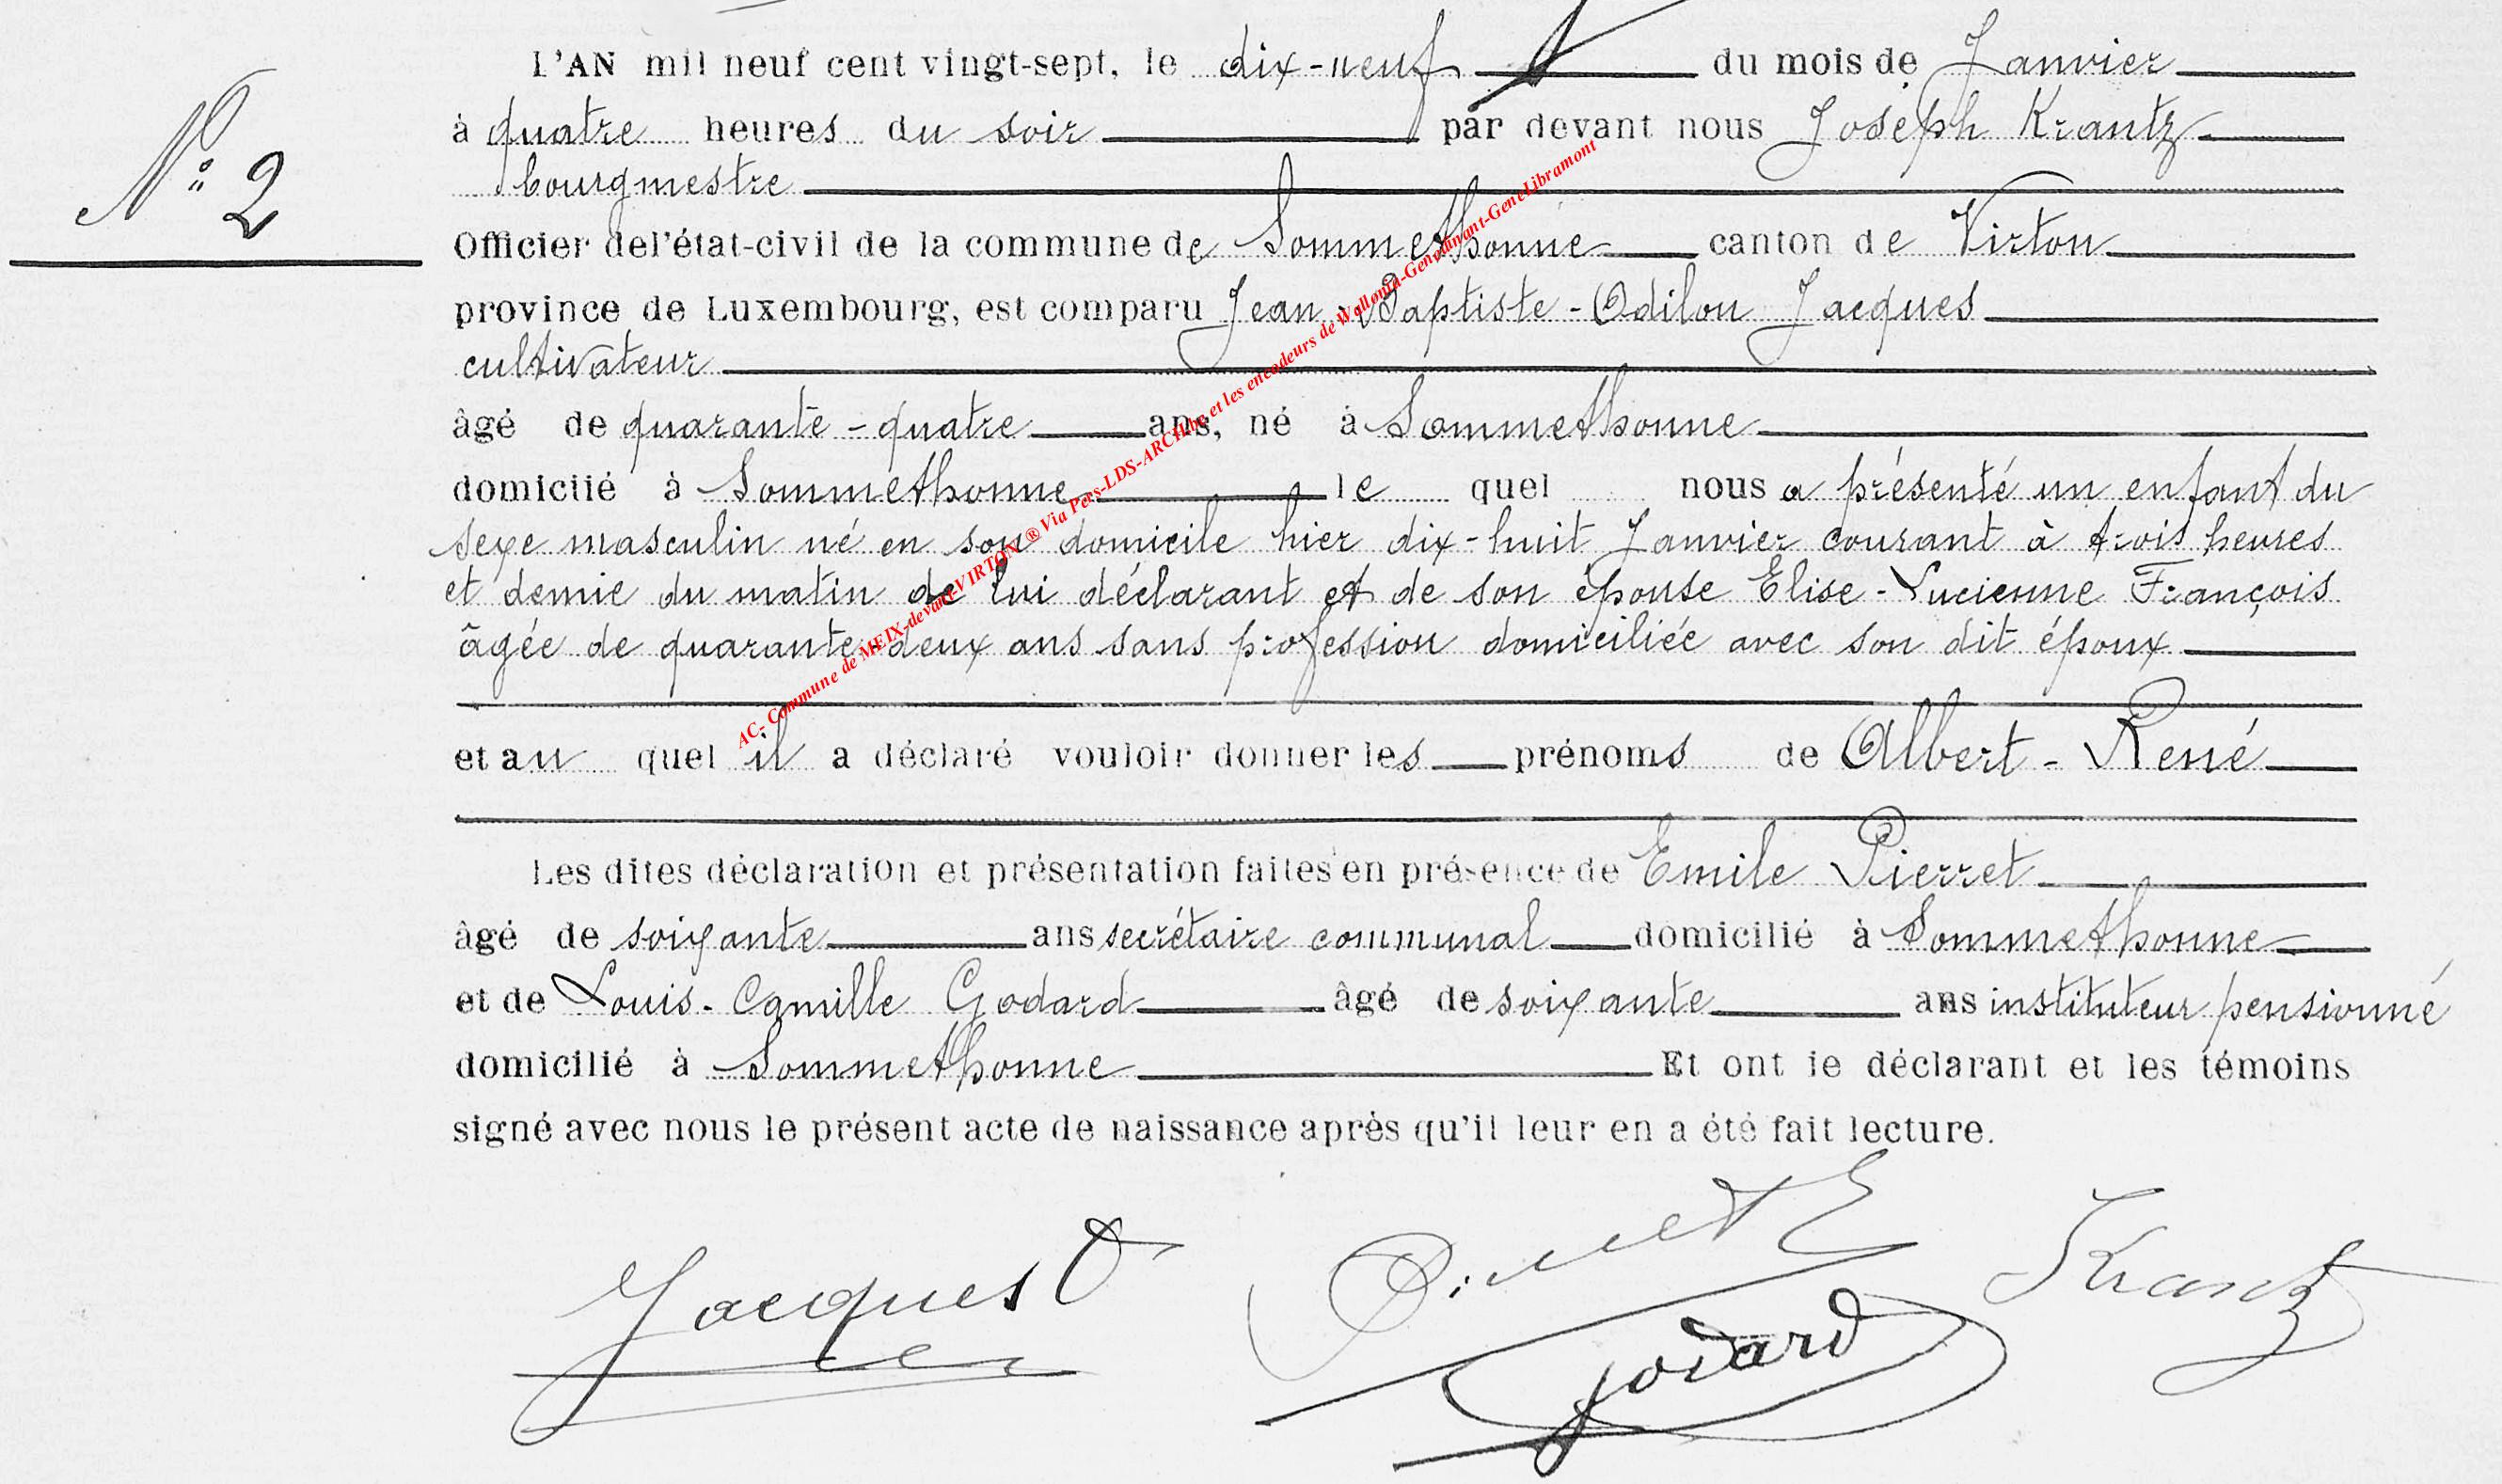 L'AN mil neuf cent vingt-sept, le dix-neuf du mois de Janvier
à quatre heures du soir par devant nous Joseph Krantz
N° 2
bourgmestre
Officier de l'état-civil de la commune de Sommethonne canton de Virton
province de Luxembourg, est comparu Jean-Baptiste-Odilon Jacques
cultivateur
âgé de quarante-quatre ans, né à Sommethonne
domicilié à Sommethonne lequel nous a présenté un enfant du
sexe masculin né en son domicile hier dix-huit Janvier courant à trois heures
et demie du matin de lui déclarant et de son épouse Elise-Lucienne François
âgée de quarante-deux ans sans profession domiciliée avec son dit époux
et au quel il a déclaré vouloir donner les prénoms de Albert-René
Les dites déclaration et présentation faites en présence de Emile Pierret
âgé de soixante ans secrétaire communal domicilié à Sommethonne
et de Louis-Camille Godard âgé de soixante ans instituteur pensionné
domicilié à Sommethonne Et ont le déclarant et les témoins
signé avec nous le présent acte de naissance après qu'il leur en a été fait lecture.
Jacques O Pierret E Krantz
Godard
AC- Commune de MEIX-devant-VIRTON ® Via Pers-LDS-ARCH et les encodeurs de Wallonia-Genedinant-GeneLibramont